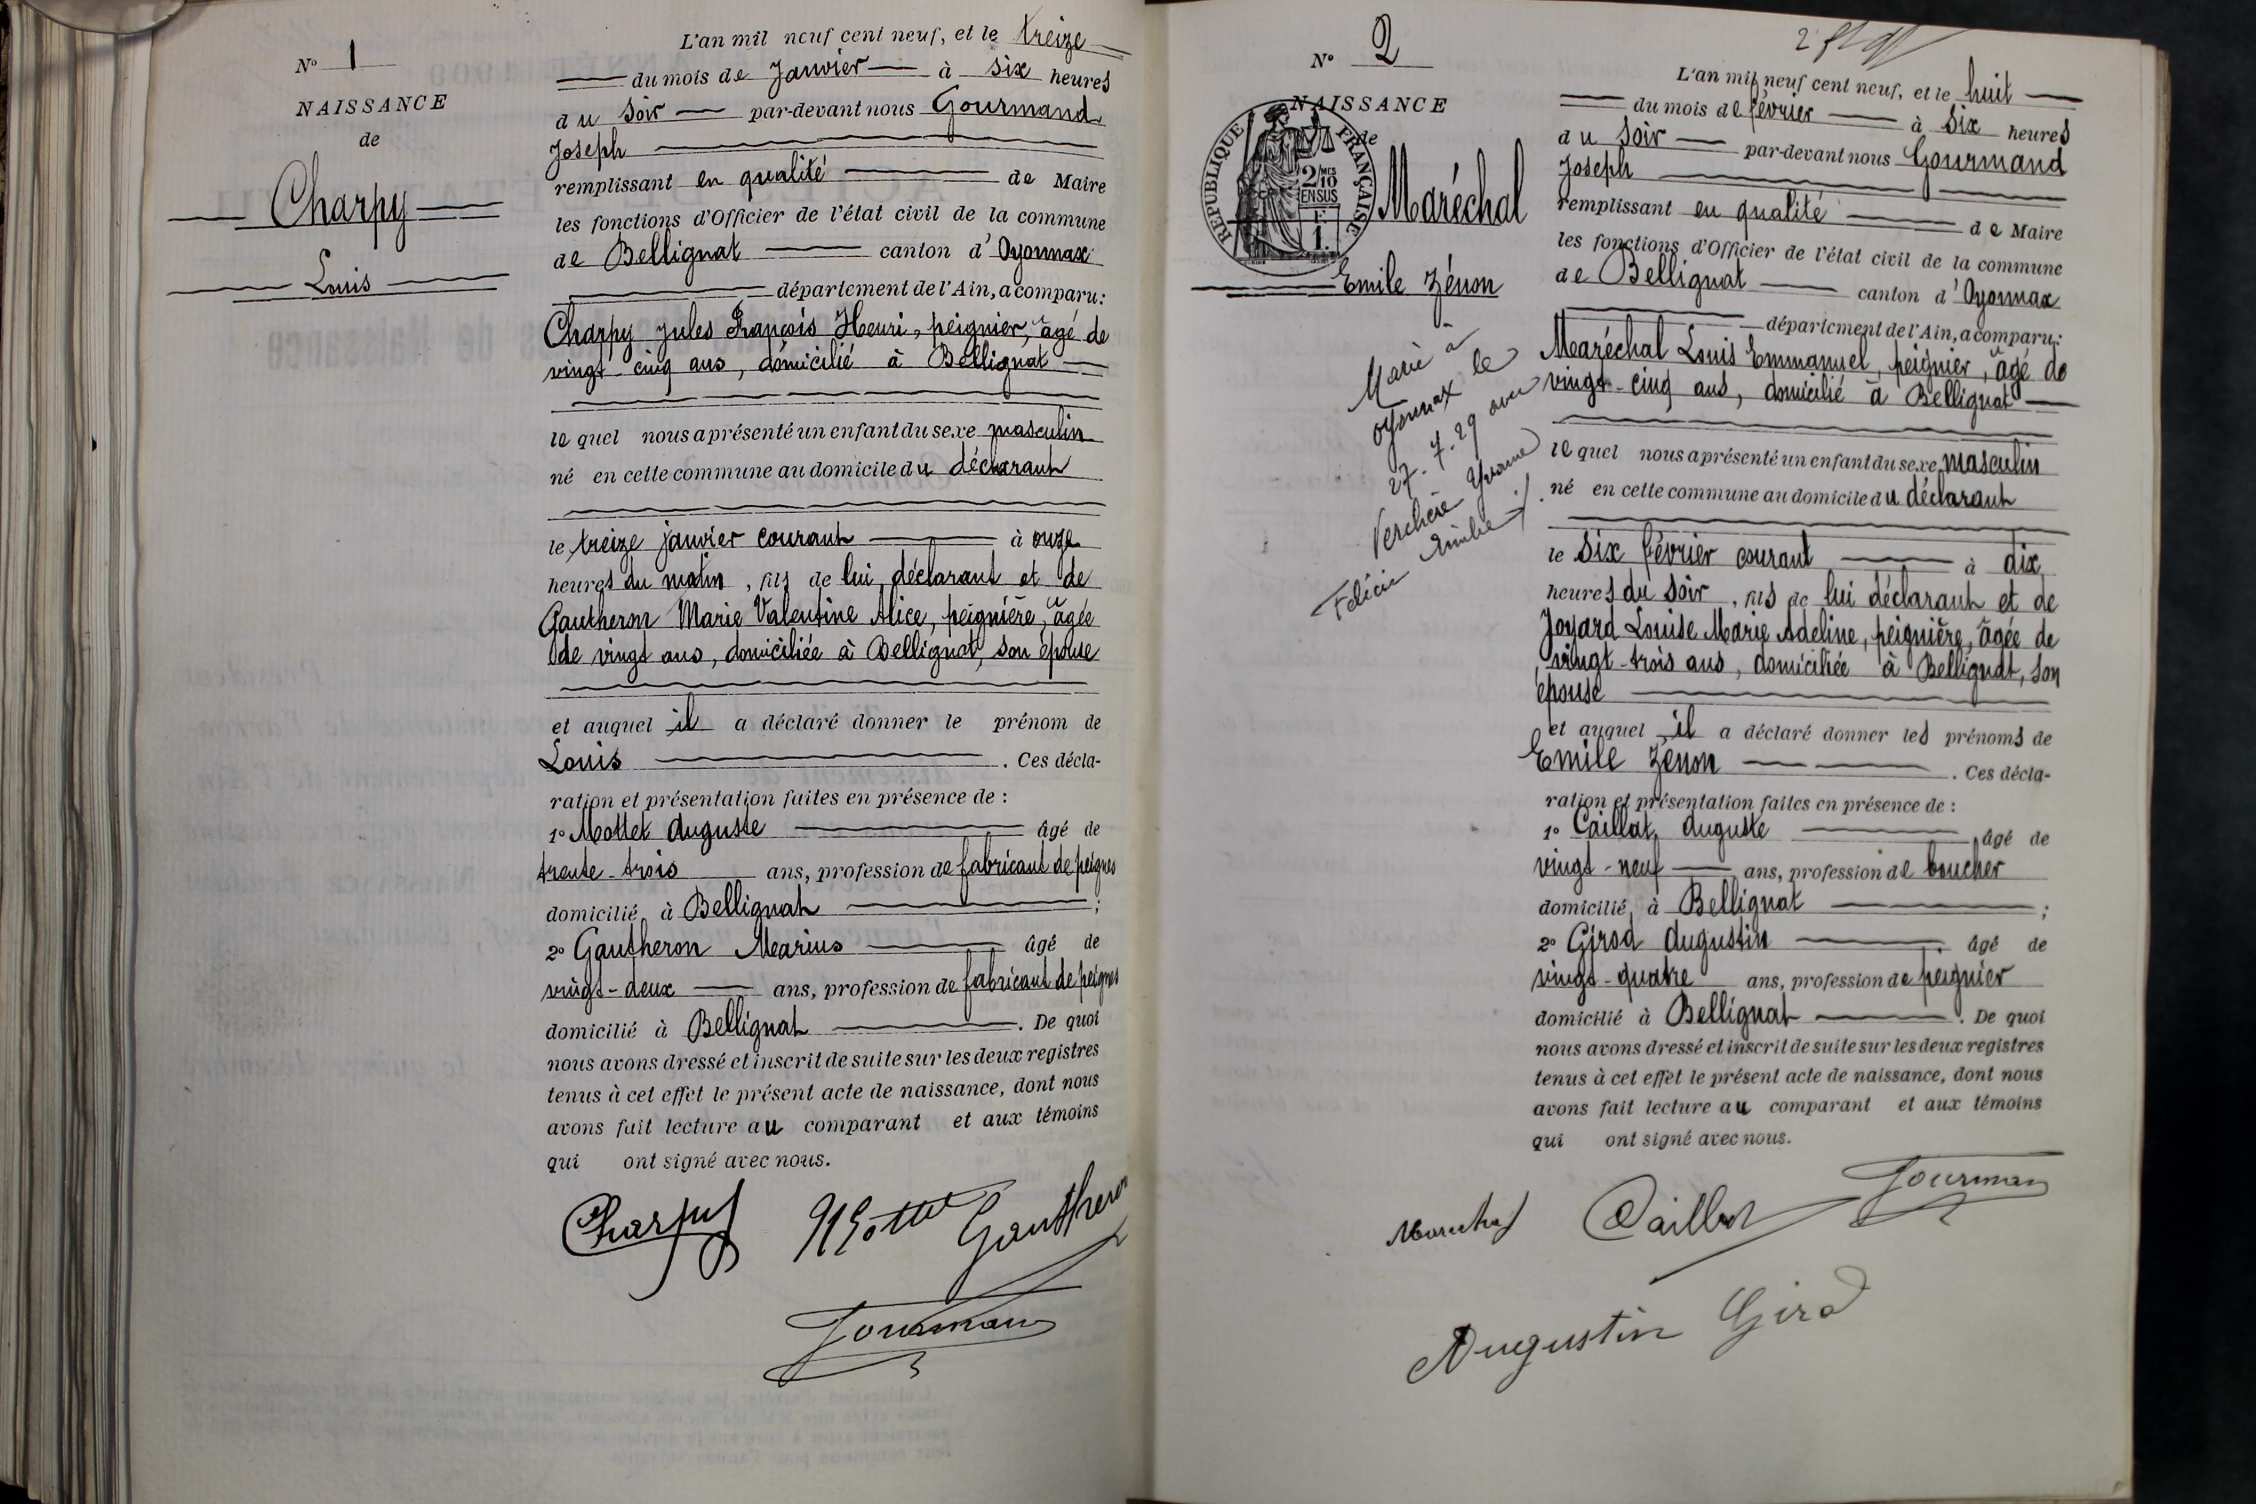 N° 1
NAISSANCE
de
Charpy
Louis
L'an mil neuf cent neuf, et le treize
du mois de Janvier à six heures
du soir par-devant nous Gourmand
Joseph
remplissant en qualité de Maire
les fonctions d'Officier de l'état civil de la commune
de Bellignat canton d'Oyonnax
département de l'Ain, a comparu:
Charpy Jules François Henri, peignier, âgé de
vingt-cinq ans, domicilié à Bellignat
lequel nous a présenté un enfant du sexe masculin
né en cette commune au domicile du déclarant
le treize janvier courant à onze
heures du matin, fils de lui déclarant et de
Gautheron Marie Valentine Alice, peignière, âgée
de vingt ans, domiciliée à Bellignat, son épouse
et auquel il a déclaré donner le prénom de
Louis. Ces décla-
ration et présentation faites en présence de :
1° Mottet Auguste âgé de
trente-trois ans, profession de fabricant de peignes
domicilié à Bellignat ;
2° Gautheron Marius âgé de
vingt-deux ans, profession de fabricant de peignes
domicilié à Bellignat. De quoi
nous avons dressé et inscrit de suite sur les deux registres
tenus à cet effet le présent acte de naissance, dont nous
avons fait lecture au comparant et aux témoins
qui ont signé avec nous.
Charpy Mottet Gautheron
Gourmand
N° 2
NAISSANCE
de
REPUBLIQUE FRANÇAISE
2/10 MES
EN SUS
1F
1.
Maréchal
Emile Zénon
Marié à
Oyonnax le
27-7-29 avec
Verchère Yvonne
Félicie Emilie
L'an mil neuf cent neuf, et le huit
du mois de février à six heures
du soir par-devant nous Gourmand
Joseph
remplissant en qualité de Maire
les fonctions d'Officier de l'état civil de la commune
de Bellignat canton d'Oyonnax
département de l'Ain, a comparu:
Maréchal Louis Emmanuel, peignier, âgé de
vingt-cinq ans, domicilié à Bellignat
lequel nous a présenté un enfant du sexe masculin
né en cette commune au domicile du déclarant
le six février courant à dix
heures du soir, fils de lui déclarant et de
Joyard Louise Marie Adeline, peignière, âgée de
vingt-trois ans, domiciliée à Bellignat, son
épouse
et auquel il a déclaré donner les prénoms de
Emile Zénon. Ces décla-
ration et présentation faites en présence de :
1° Caillat Auguste âgé de
vingt-neuf ans, profession de boucher
domicilié à Bellignat ;
2° Girod Augustin âgé de
vingt-quatre ans, profession de peignier
domicilié à Bellignat. De quoi
nous avons dressé et inscrit de suite sur les deux registres
tenus à cet effet le présent acte de naissance, dont nous
avons fait lecture au comparant et aux témoins
qui ont signé avec nous.
Marechal Caillat Gourmand
Augustin Girod